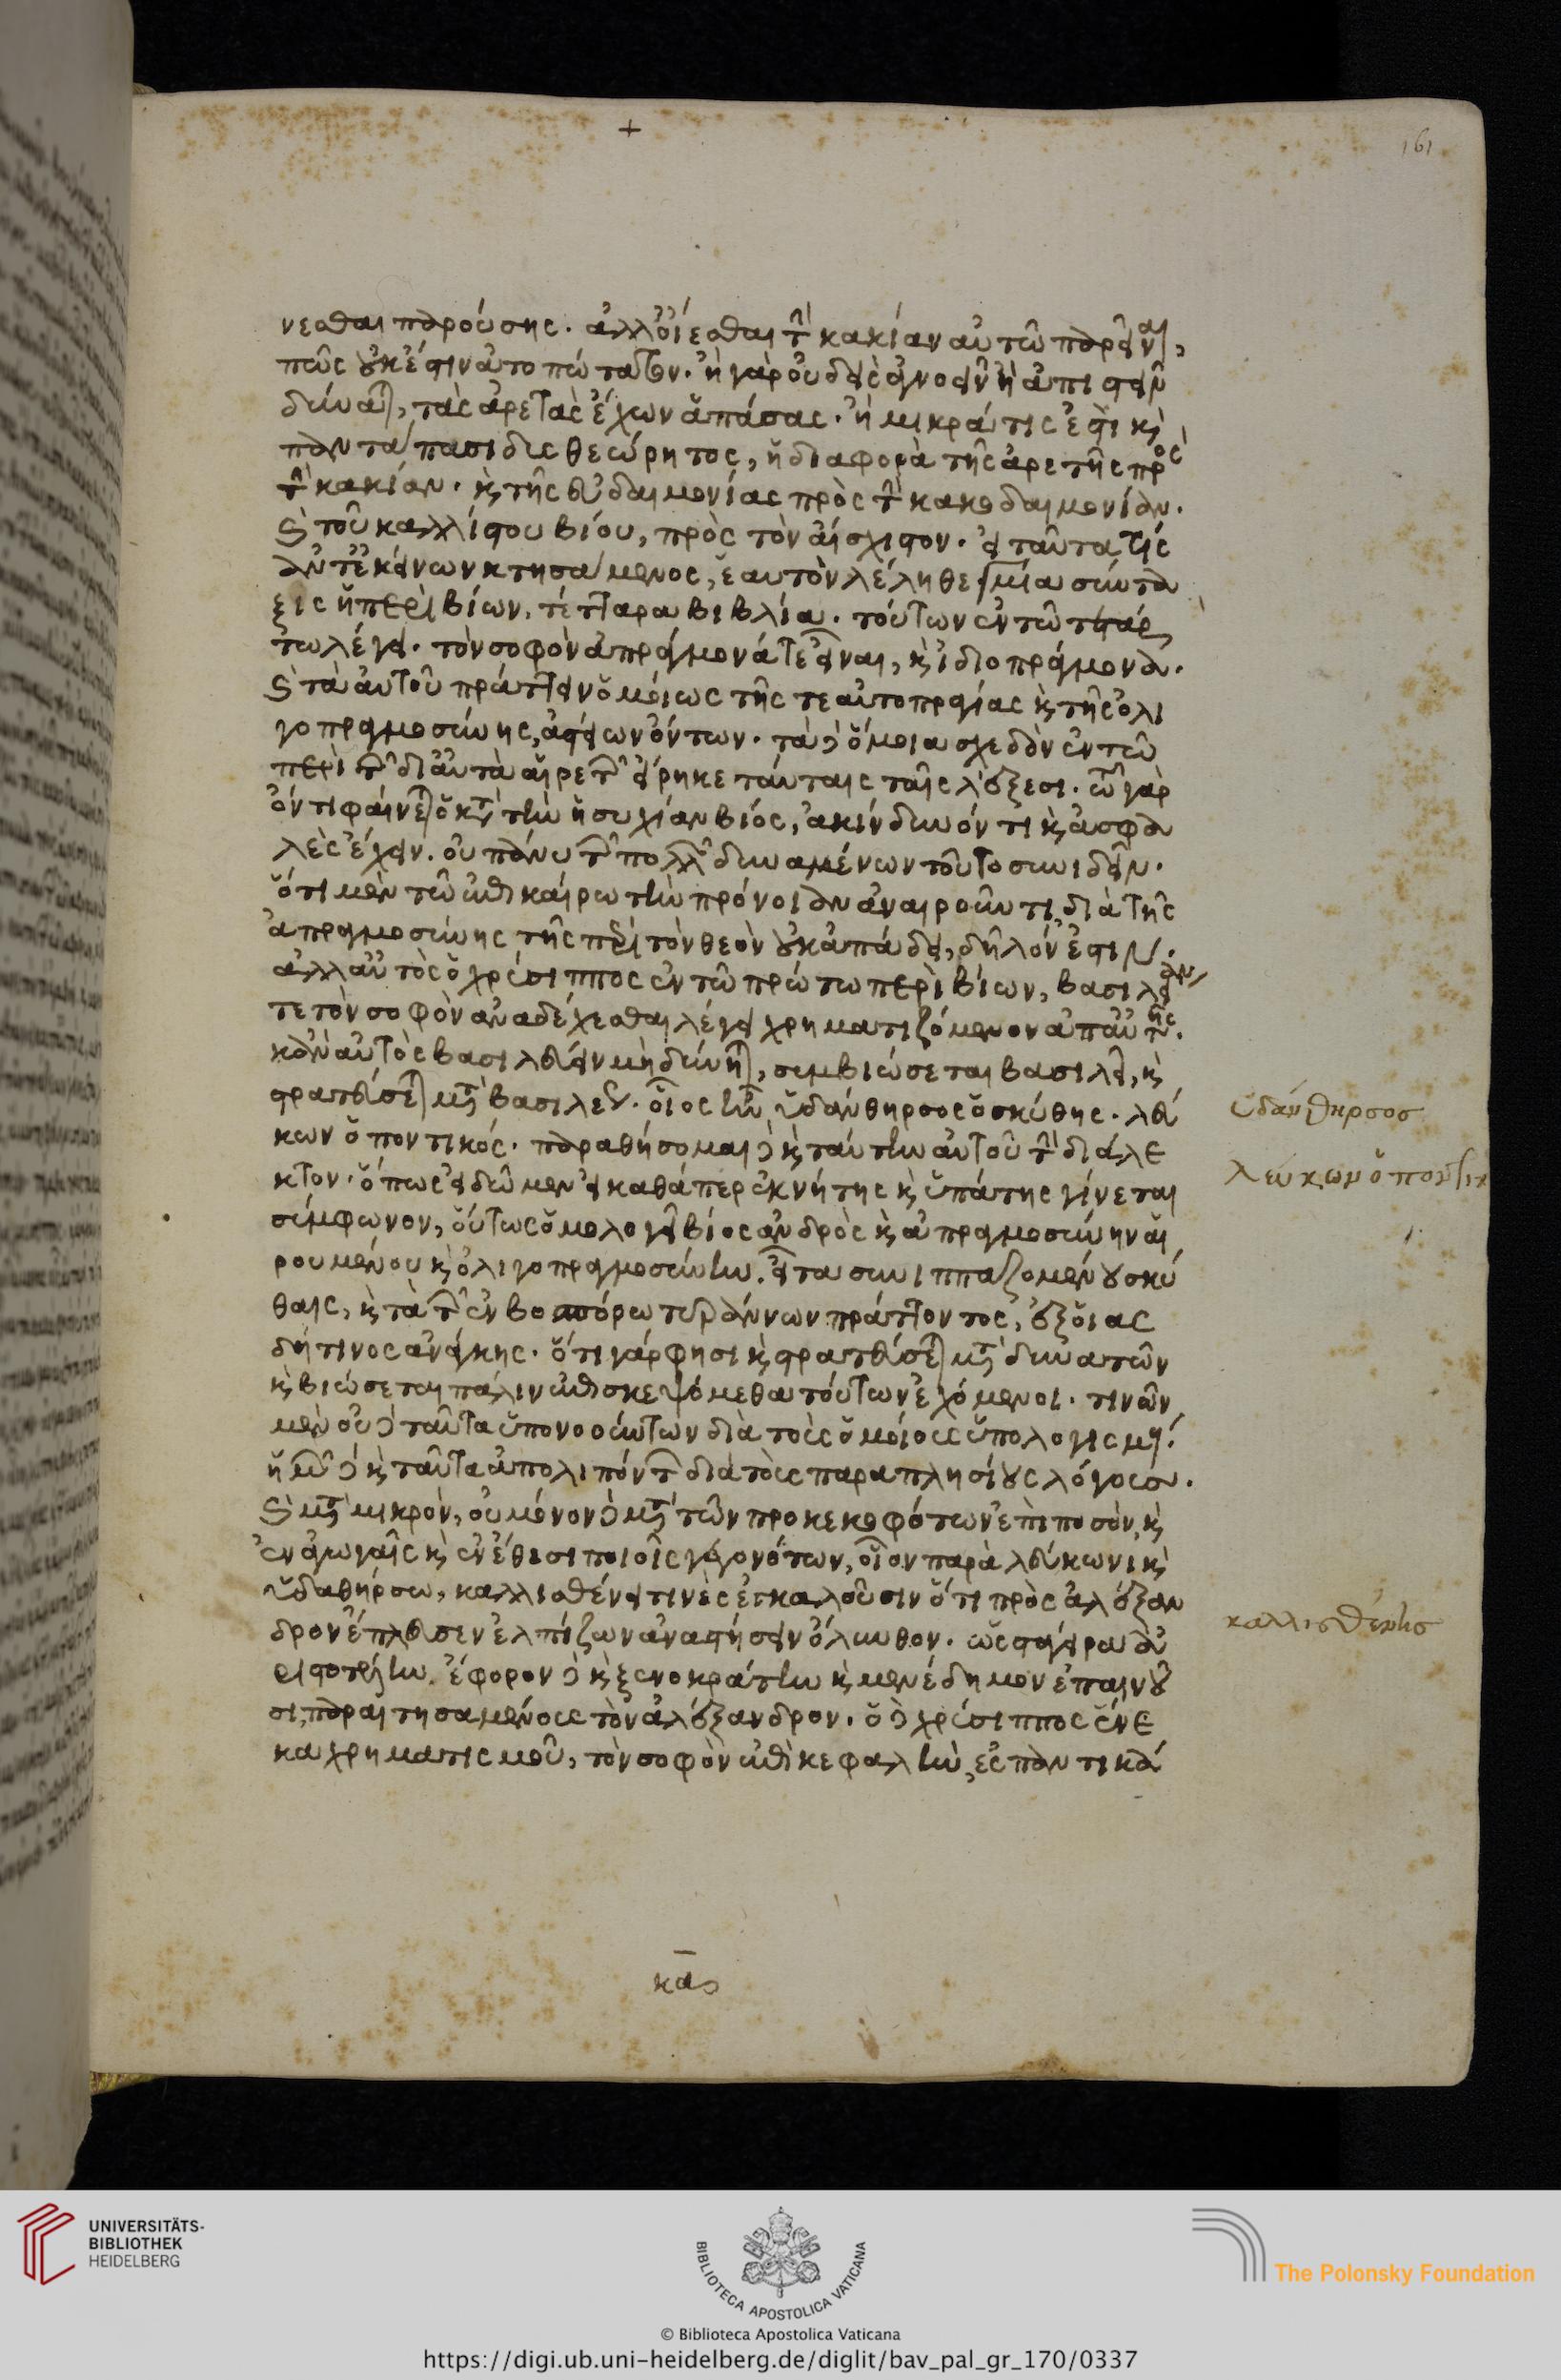 +
161
νεσθαι παρούσης. ἀλλ' οἴεσθαι τὴν κακίαν αὐτῶ παρεῖναι,
πῶς οὐκ ἔστιν ἀτοπώτατον. ἢ γὰρ οὐδεὶς ἀγνοεῖν ἢ ἀπιστεῖν
δύναται, τὰς ἀρετὰς ἔχων ἁπάσας. ἢ μικρά τις ἐστὶ καὶ
παντάπασι δυσθεώρητος, ἡ διαφορὰ τῆς ἀρετῆς πρὸς
τὴν κακίαν. καὶ τῆς εὐδαιμονίας πρὸς τὴν κακοδαιμονίαν.
καὶ τοῦ καλλίστου βίου, πρὸς τὸν αἴσχιστον. εἰ ταῦτα τίς
ἀντ' ἐκείνων κτησάμενος, ἑαυτὸν λέληθε μία σύντα
ξις ἡ περὶ βίων, τέτταρα βιβλία. τούτων ἐν τῶ τετάρ
τω λέγει. τὸν σοφὸν ἀπράγμονά τε εἶναι, καὶ ἰδιοπράγμονα.
καὶ τὰ αὑτοῦ πράττειν ὁμοίως τῆς τε αὐτοπραγίας καὶ τῆς ὀλι
γοπραγμοσύνης, ἀστείων ὄντων. τὰ δὲ ὅμοια σχεδὸν ἐν τῶ
περὶ τῶν δι' αὑτὰ αἱρετῶν εἴρηκε ταύταις ταῖς λέξεσι. τῶ γὰρ
ὄντι φαίνεται ὁ κατὰ τὴν ἡσυχίαν βίος, ἀκίνδυνόν τι καὶ ἀσφα
λὲς ἔχειν. οὐ πάνυ τῶν πολλῶν δυναμένων τοῦτο συνιδεῖν.
ὅτι μὲν τῶ ἐπικαίρω τὴν πρόνοιαν ἀναιροῦντι διὰ τῆς
ἀπραγμοσύνης τῆς περὶ τὸν θεὸν οὐκ ἀπάδει, δῆλόν ἐστιν.
ἀλλ' αὐτὸς ὁ χρύσιππος ἐν τῶ πρώτω περὶ βίων, βασιλείαν
τε τὸν σοφὸν ἀναδέχεσθαι λέγει χρηματιζόμενον ἀπ' αὐτῆς.
κἂν αὐτὸς βασιλεύειν μὴ δύνηται, συμβιώσεται βασιλεῖ, καὶ
στρατεύσεται μετὰ βασιλέως. οἷος ἦν ὑδάνθηρσος ὁ σκύθης. λεύ
κων ὁ ποντικός. παραθήσομαι δὲ καὶ ταύτην αὐτοῦ τὴν διάλε
κτον. ὅπως εἰδῶμεν εἰ καθάπερ ἐκ νήτης καὶ ὑπάτης γίνεται
σύμφωνον, οὕτως ὁμολογεῖ βίος ἀνδρὸς καὶ ἀπραγμοσύνην αἱ
ρουμένου καὶ ὀλιγοπραγμοσύνην. εἶτα συνιππαζομένου σκύ
θαις, καὶ τὰ τῶν ἐν βοσπόρω τυράννων πράττοντος, ἐξ οἵας
δήτινος ἀνάγκης. ὅτι γάρ φησι καὶ στρατεύσεται μετὰ δυνατῶν
καὶ βιώσεται πάλιν ἐπισκεψόμεθα τούτων ἐχόμενοι. τινῶν
μὲν οὐδὲ ταῦτα ὑπονοούντων διὰ τοὺς ὁμοίους ὑπολογισμούς.
ἡμῶν δὲ καὶ ταῦτα ἀπολιπόντων διὰ τοὺς παραπλησίους λόγους.
καὶ μετὰ μικρὸν, οὐ μόνον δὲ μετὰ τῶν προκεκοφότων ἐπὶ ποσὸν, καὶ
ἐν ἀγωγαῖς καὶ ἐν ἔθεσι ποιοῖς γεγονότων, οἷον παρὰ λεύκωνι καὶ
ὑδαθήρσω, καλλισθένει τινὲς ἐγκαλοῦσιν ὅτι πρὸς ἀλέξαν
δρον ἔπλευσεν ἐλπίζων ἀναστήσειν ὄλυνθον. ὡς στάγειρα ἀ
ριστοτέλην. ἔφορον δὲ καὶ ξενοκράτην καὶ μενέδημον ἐπαινοῦ
σι, παραιτησαμένους τὸν ἀλέξανδρον. ὁ δὲ χρύσιππος ἕνε
κα χρηματισμοῦ, τὸν σοφὸν ἐπὶ κεφαλὴν ἐς παντικά
ὑδάνθηρσος
λεύκων ὁ ποντικ
καλλισθένης
κας
UNIVERSITÄTS-
BIBLIOTHEK
HEIDELBERG
BIBLIOTECA APOSTOLICA VATICANA
The Polonsky Foundation
© Biblioteca Apostolica Vaticana
https://digi.ub.uni-heidelberg.de/diglit/bav_pal_gr_170/0337